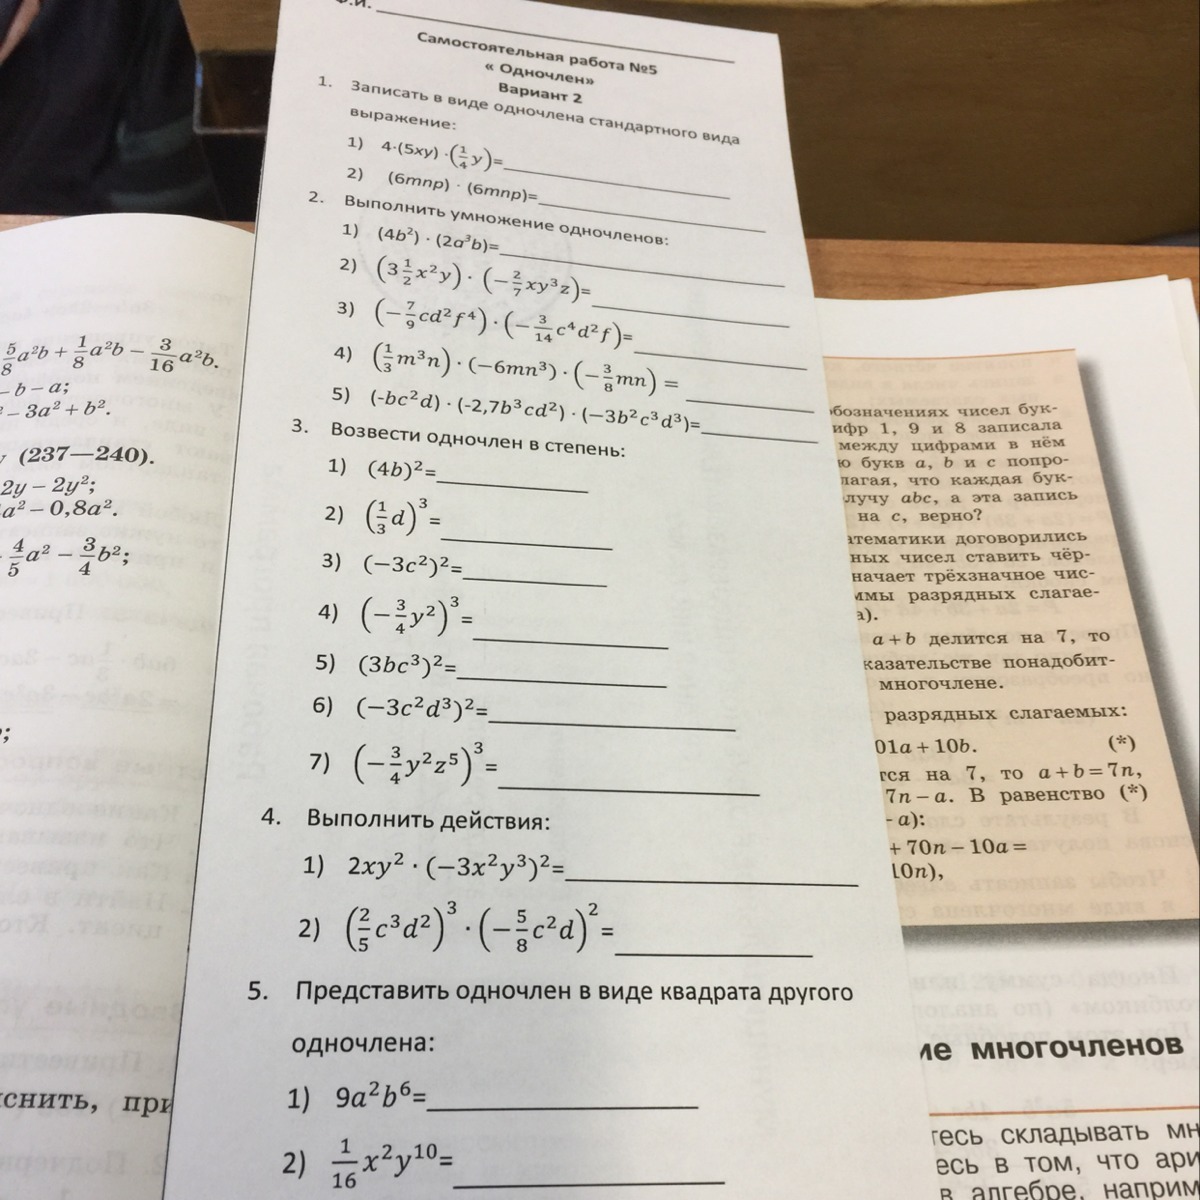 Ф.И.
Самостоятельная работа №5
« Одночлен»
Вариант 2
1. Записать в виде одночлена стандартного вида
выражение:
1) 4·(5xy) ·(1/4 y)=
2) (6mnp) · (6mnp)=
2. Выполнить умножение одночленов:
1) (4b²) · (2a³b)=
2) (3 1/2 x²y) · (−2/7 xy³z)=
3) (−7/9 cd²f⁴) · (−3/14 c⁴d²f)=
4) (1/3 m³n) · (−6mn³) · (−3/8 mn) =
5) (-bc²d) · (-2,7b³cd²) · (−3b²c³d³)=
3. Возвести одночлен в степень:
1) (4b)²=
2) (1/3 d)³=
3) (−3c²)²=
4) (−3/4 y²)³=
5) (3bc³)²=
6) (−3c²d³)²=
7) (−3/4 y²z⁵)³=
4. Выполнить действия:
1) 2xy² · (−3x²y³)²=
2) (2/5 c³d²)³ · (−5/8 c²d)²=
5. Представить одночлен в виде квадрата другого
одночлена:
1) 9a²b⁶=
2) 1/16 x²y¹⁰=
5/8 a²b + 1/8 a²b − 3/16 a²b.
− b − a;
− 3a² + b².
(237—240).
2y − 2y²;
a² − 0,8a².
4/5 a² − 3/4 b²;
снить, при
бозначениях чисел бук-
ифр 1, 9 и 8 записала
между цифрами в нём
ю букв a, b и c попро-
лагая, что каждая бук-
лучу abc, а эта запись
на c, верно?
атематики договорились
ных чисел ставить чёр-
начает трёхзначное чис-
ммы разрядных слагае-
а).
a + b делится на 7, то
казательстве понадобит-
многочлене.
разрядных слагаемых:
01a + 10b. (*)
тся на 7, то a + b = 7n,
7n − a. В равенство (*)
− a):
+ 70n − 10a =
10n),
ие многочленов
тесь складывать мн
есь в том, что ари
в алгебре, наприм